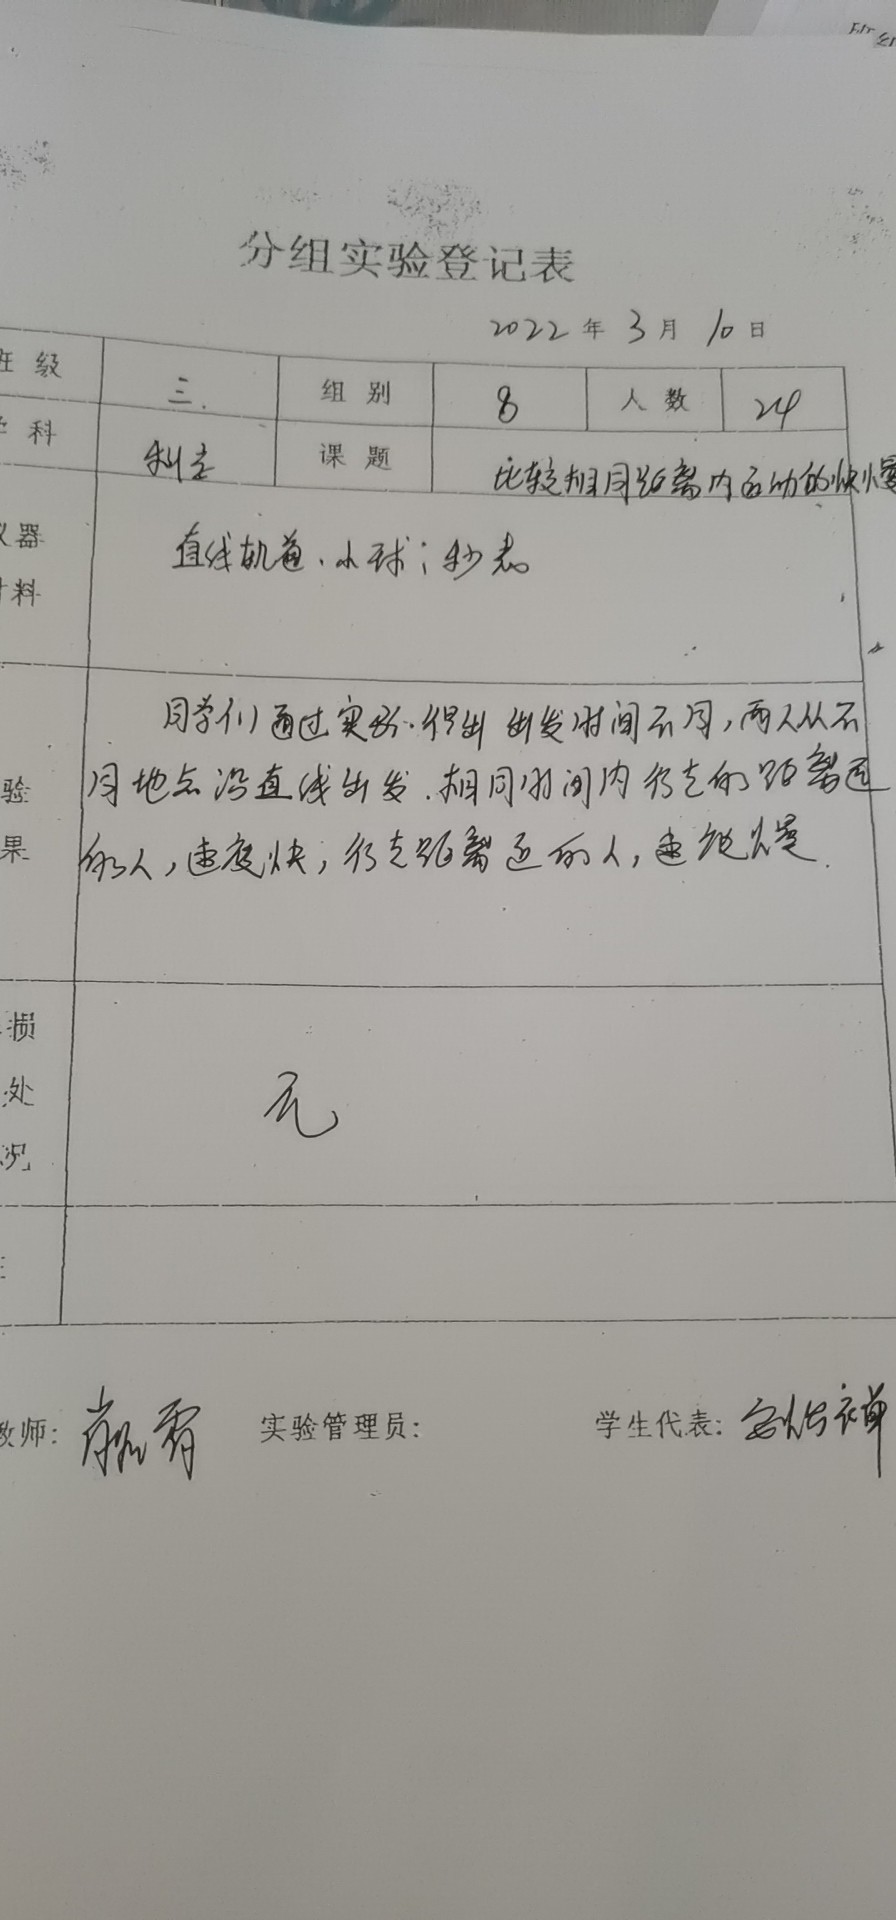 分组实验登记表
2022年3月10日
班级 三. 组别 8 人数 24
学科 科学 课题 比较相同距离内运动的快慢
仪器 直线轨道、小球；秒表
材料
同学们通过实验.得出出发时间不同，两人从不
验 同地点沿直线出发.相同时间内行走的距离远
果 的人，速度快，行走距离近的人，速度慢.
损
处 无
况
教师： 实验管理员： 学生代表：